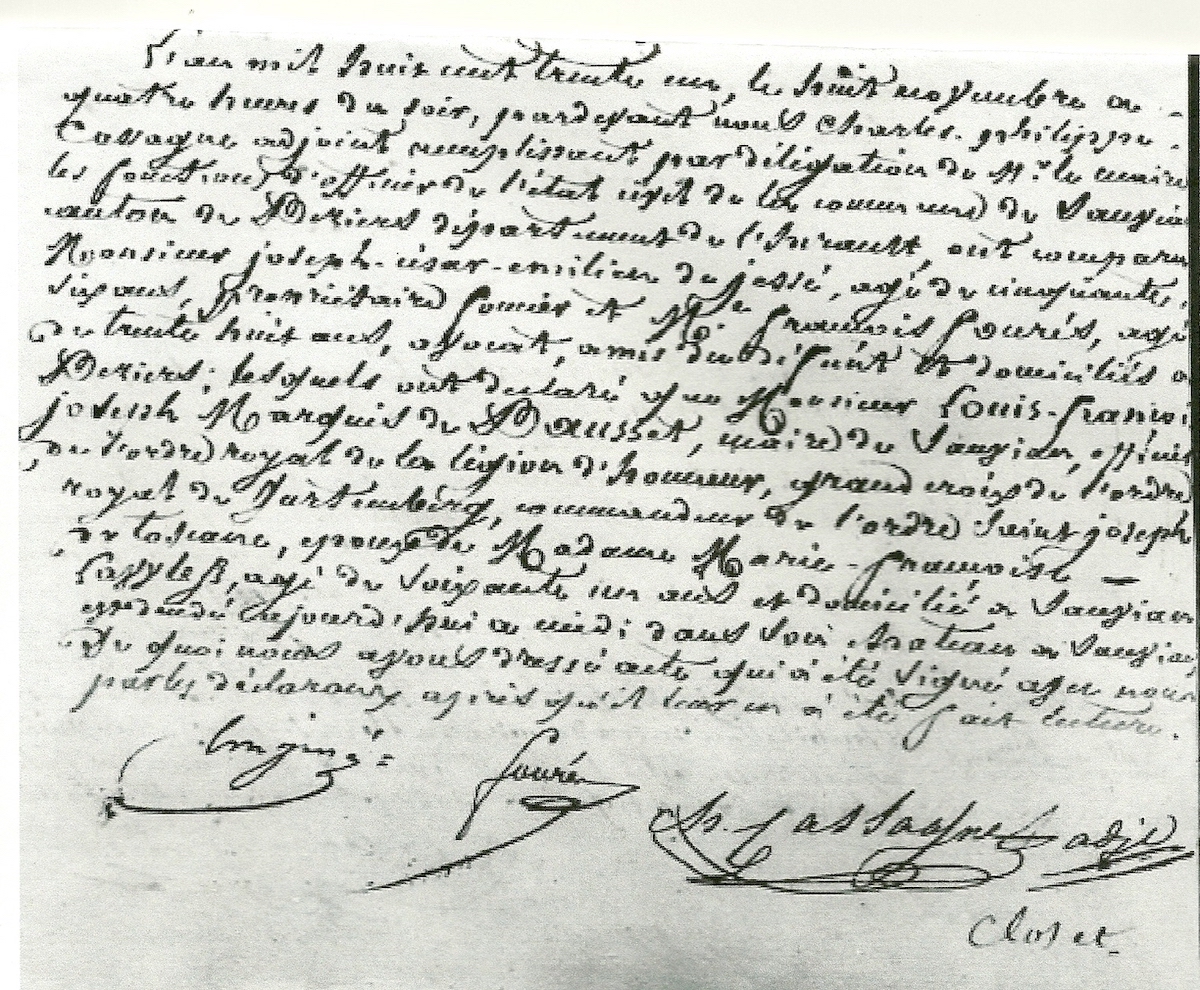 L'an mil huit cent trente un, le huit novembre a
quatre heures du soir, pardevant nous Charles philippe
Cassagne adjoint remplissant par délégation de Mr. le maire
les fonctions d'officier de l'état civil de la commune de Sauvian
canton de Beziers département de l'hérault, ont comparu
Monsieur joseph-césar-emilien de jessé, agé de cinquante
six ans, propriétaire foncier et Mr. françois fourés, agé
de trente huit ans, avocat, amis du défunt et domiciliés a
Beziers; lesquels ont declaré que Monsieur Louis-françois
joseph Marquis de Bausset, maire de Sauvian, officier
de l'ordre royal de la légion d'honneur, grand croix de l'ordre
royal de Vurtemberg, commandeur de l'ordre Saint joseph
de toscane, epoux de Madame Marie-françoise —
agé de soixante un ans et domicilié a Sauvian
est decedé aujourd'hui a midi dans son chateau a Sauvian
De quoi nous avons dressé acte qui a été signé avec nous
par les déclarants après qu'il leur en a été fait lecture.
fourés
Ch. Cassagne adjt